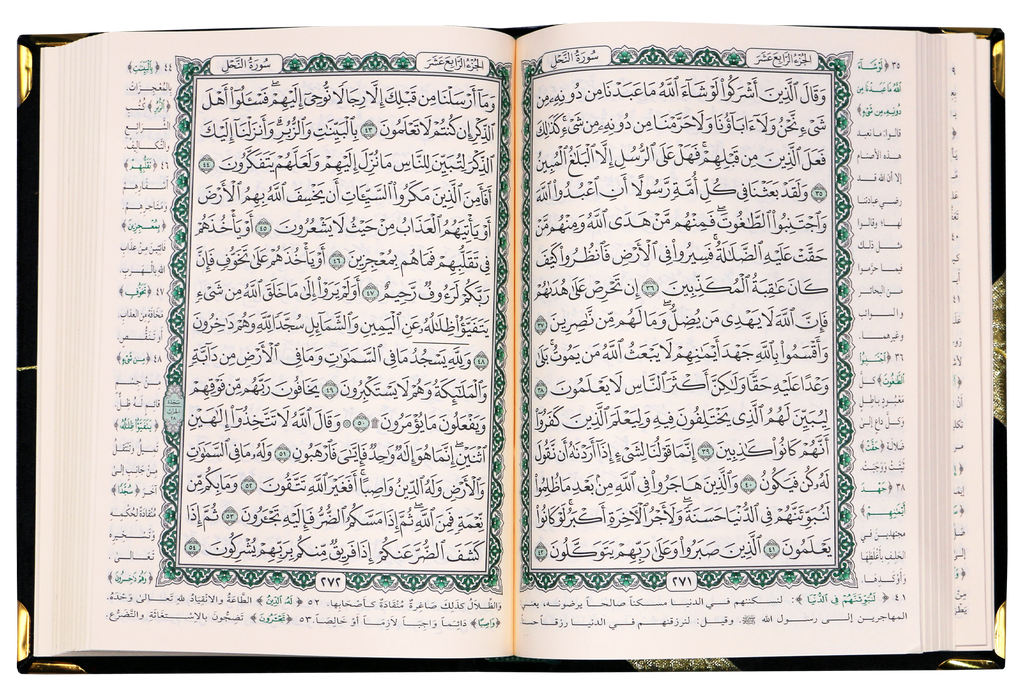 الجزء الرابع عشر
سورة النحل
وَقَالَ الَّذِينَ أَشْرَكُوا لَوْ شَاءَ اللَّهُ مَا عَبَدْنَا مِن دُونِهِ مِن
شَيْءٍ نَّحْنُ وَلَا ءَابَاؤُنَا وَلَا حَرَّمْنَا مِن دُونِهِ مِن شَيْءٍ كَذَٰلِكَ
فَعَلَ الَّذِينَ مِن قَبْلِهِمْ فَهَلْ عَلَى الرُّسُلِ إِلَّا الْبَلَٰغُ الْمُبِينُ
٣٥ وَلَقَدْ بَعَثْنَا فِي كُلِّ أُمَّةٍ رَّسُولًا أَنِ اعْبُدُوا اللَّهَ
وَاجْتَنِبُوا الطَّٰغُوتَ فَمِنْهُم مَّنْ هَدَى اللَّهُ وَمِنْهُم مَّنْ
حَقَّتْ عَلَيْهِ الضَّلَٰلَةُ فَسِيرُوا فِي الْأَرْضِ فَانظُرُوا كَيْفَ
كَانَ عَٰقِبَةُ الْمُكَذِّبِينَ ٣٦ إِن تَحْرِصْ عَلَىٰ هُدَىٰهُمْ
فَإِنَّ اللَّهَ لَا يَهْدِي مَن يُضِلُّ وَمَا لَهُم مِّن نَّٰصِرِينَ ٣٧
وَأَقْسَمُوا بِاللَّهِ جَهْدَ أَيْمَٰنِهِمْ لَا يَبْعَثُ اللَّهُ مَن يَمُوتُ بَلَىٰ
وَعْدًا عَلَيْهِ حَقًّا وَلَٰكِنَّ أَكْثَرَ النَّاسِ لَا يَعْلَمُونَ ٣٨
لِيُبَيِّنَ لَهُمُ الَّذِي يَخْتَلِفُونَ فِيهِ وَلِيَعْلَمَ الَّذِينَ كَفَرُوا
أَنَّهُمْ كَانُوا كَٰذِبِينَ ٣٩ إِنَّمَا قَوْلُنَا لِشَيْءٍ إِذَا أَرَدْنَٰهُ أَن نَّقُولَ
لَهُ كُن فَيَكُونُ ٤٠ وَالَّذِينَ هَاجَرُوا فِي اللَّهِ مِن بَعْدِ مَا ظُلِمُوا
لَنُبَوِّئَنَّهُمْ فِي الدُّنْيَا حَسَنَةً وَلَأَجْرُ الْآخِرَةِ أَكْبَرُ لَوْ كَانُوا
يَعْلَمُونَ ٤١ الَّذِينَ صَبَرُوا وَعَلَىٰ رَبِّهِمْ يَتَوَكَّلُونَ ٤٢
٢٧١
٣٥ ﴿لَوْ شَاءَ
اللَّهُ مَا عَبَدْنَا مِن
دُونِهِ مِن شَيْءٍ﴾
قالوا: ما نعبد
هذه الأصنام
إلا أن الله قد
رضي عبادتنا
لها، وقالوا
مثل ذلك
فيما حرموا
من البحائر
والسوائب
وغيرهما.
٣٦ ﴿اجْتَنِبُوا
الطَّٰغُوتَ﴾ كل
معبود باطل
وكل داع إلى
ضلالة ﴿حَقَّتْ﴾
ثبتت ووجبت.
٣٨ ﴿جَهْدَ
أَيْمَٰنِهِمْ﴾
مجتهدين في
الحلف بأغلظها
وأوكدها.
٤١ ﴿لَنُبَوِّئَنَّهُمْ فِي الدُّنْيَا﴾: لنسكننهم في الدنيا مسكناً صالحاً يرضونه، يعني
المهاجرين إلى رسول الله ﷺ. وقيل: لنرزقنهم في الدنيا رزقاً حسناً
الجزء الرابع عشر
سورة النحل
وَمَا أَرْسَلْنَا مِن قَبْلِكَ إِلَّا رِجَالًا نُّوحِي إِلَيْهِمْ فَسْـَٔلُوا أَهْلَ
الذِّكْرِ إِن كُنتُمْ لَا تَعْلَمُونَ ٤٣ بِالْبَيِّنَٰتِ وَالزُّبُرِ وَأَنزَلْنَا إِلَيْكَ
الذِّكْرَ لِتُبَيِّنَ لِلنَّاسِ مَا نُزِّلَ إِلَيْهِمْ وَلَعَلَّهُمْ يَتَفَكَّرُونَ ٤٤
أَفَأَمِنَ الَّذِينَ مَكَرُوا السَّيِّـَٔاتِ أَن يَخْسِفَ اللَّهُ بِهِمُ الْأَرْضَ
أَوْ يَأْتِيَهُمُ الْعَذَابُ مِنْ حَيْثُ لَا يَشْعُرُونَ ٤٥ أَوْ يَأْخُذَهُمْ
فِي تَقَلُّبِهِمْ فَمَا هُم بِمُعْجِزِينَ ٤٦ أَوْ يَأْخُذَهُمْ عَلَىٰ تَخَوُّفٍ فَإِنَّ
رَبَّكُمْ لَرَءُوفٌ رَّحِيمٌ ٤٧ أَوَلَمْ يَرَوْا إِلَىٰ مَا خَلَقَ اللَّهُ مِن شَيْءٍ
يَتَفَيَّؤُا ظِلَٰلُهُ عَنِ الْيَمِينِ وَالشَّمَائِلِ سُجَّدًا لِّلَّهِ وَهُمْ دَٰخِرُونَ
٤٨ وَلِلَّهِ يَسْجُدُ مَا فِي السَّمَٰوَٰتِ وَمَا فِي الْأَرْضِ مِن دَابَّةٍ
وَالْمَلَٰئِكَةُ وَهُمْ لَا يَسْتَكْبِرُونَ ٤٩ يَخَافُونَ رَبَّهُم مِّن فَوْقِهِمْ
وَيَفْعَلُونَ مَا يُؤْمَرُونَ ۩ ٥٠ ۞ وَقَالَ اللَّهُ لَا تَتَّخِذُوا إِلَٰهَيْنِ
اثْنَيْنِ إِنَّمَا هُوَ إِلَٰهٌ وَٰحِدٌ فَإِيَّٰيَ فَارْهَبُونِ ٥١ وَلَهُ مَا فِي السَّمَٰوَٰتِ
وَالْأَرْضِ وَلَهُ الدِّينُ وَاصِبًا أَفَغَيْرَ اللَّهِ تَتَّقُونَ ٥٢ وَمَا بِكُم مِّن
نِّعْمَةٍ فَمِنَ اللَّهِ ثُمَّ إِذَا مَسَّكُمُ الضُّرُّ فَإِلَيْهِ تَجْـَٔرُونَ ٥٣ ثُمَّ إِذَا
كَشَفَ الضُّرَّ عَنكُمْ إِذَا فَرِيقٌ مِّنكُم بِرَبِّهِمْ يُشْرِكُونَ ٥٤
٢٧٢
٤٤ ﴿بِالْبَيِّنَٰتِ﴾
بالمعجزات.
﴿الزُّبُرِ﴾
الشرائع
والتكاليف.
٤٦ ﴿تَقَلُّبِهِمْ﴾
أسفارهم
ومتاجرهم.
﴿بِمُعْجِزِينَ﴾
فائتين من عذاب
الله بالهرب.
٤٧ ﴿تَخَوُّفٍ﴾
مخافة من العذاب
أو تنقص.
٤٨ ﴿مِن شَيْءٍ﴾
من جسم
قائم له ظل
﴿يَتَفَيَّؤُا ظِلَٰلُهُ﴾
تميل وتنتقل
من جانب إلى
آخر ﴿سُجَّدًا﴾
منقادة لحكمه
وتسخيره
تعالى
﴿وَهُمْ دَٰخِرُونَ﴾
والظلال كذلك صاغرة منقادة كأصحابها. ٥٢ ﴿لَهُ الدِّينُ﴾ الطاعة والانقياد لله تعالى وحده.
﴿وَاصِبًا﴾ دائماً واجباً لازماً أو خالصاً. ٥٣ ﴿تَجْـَٔرُونَ﴾ تضجون بالاستغاثة والتضرع.